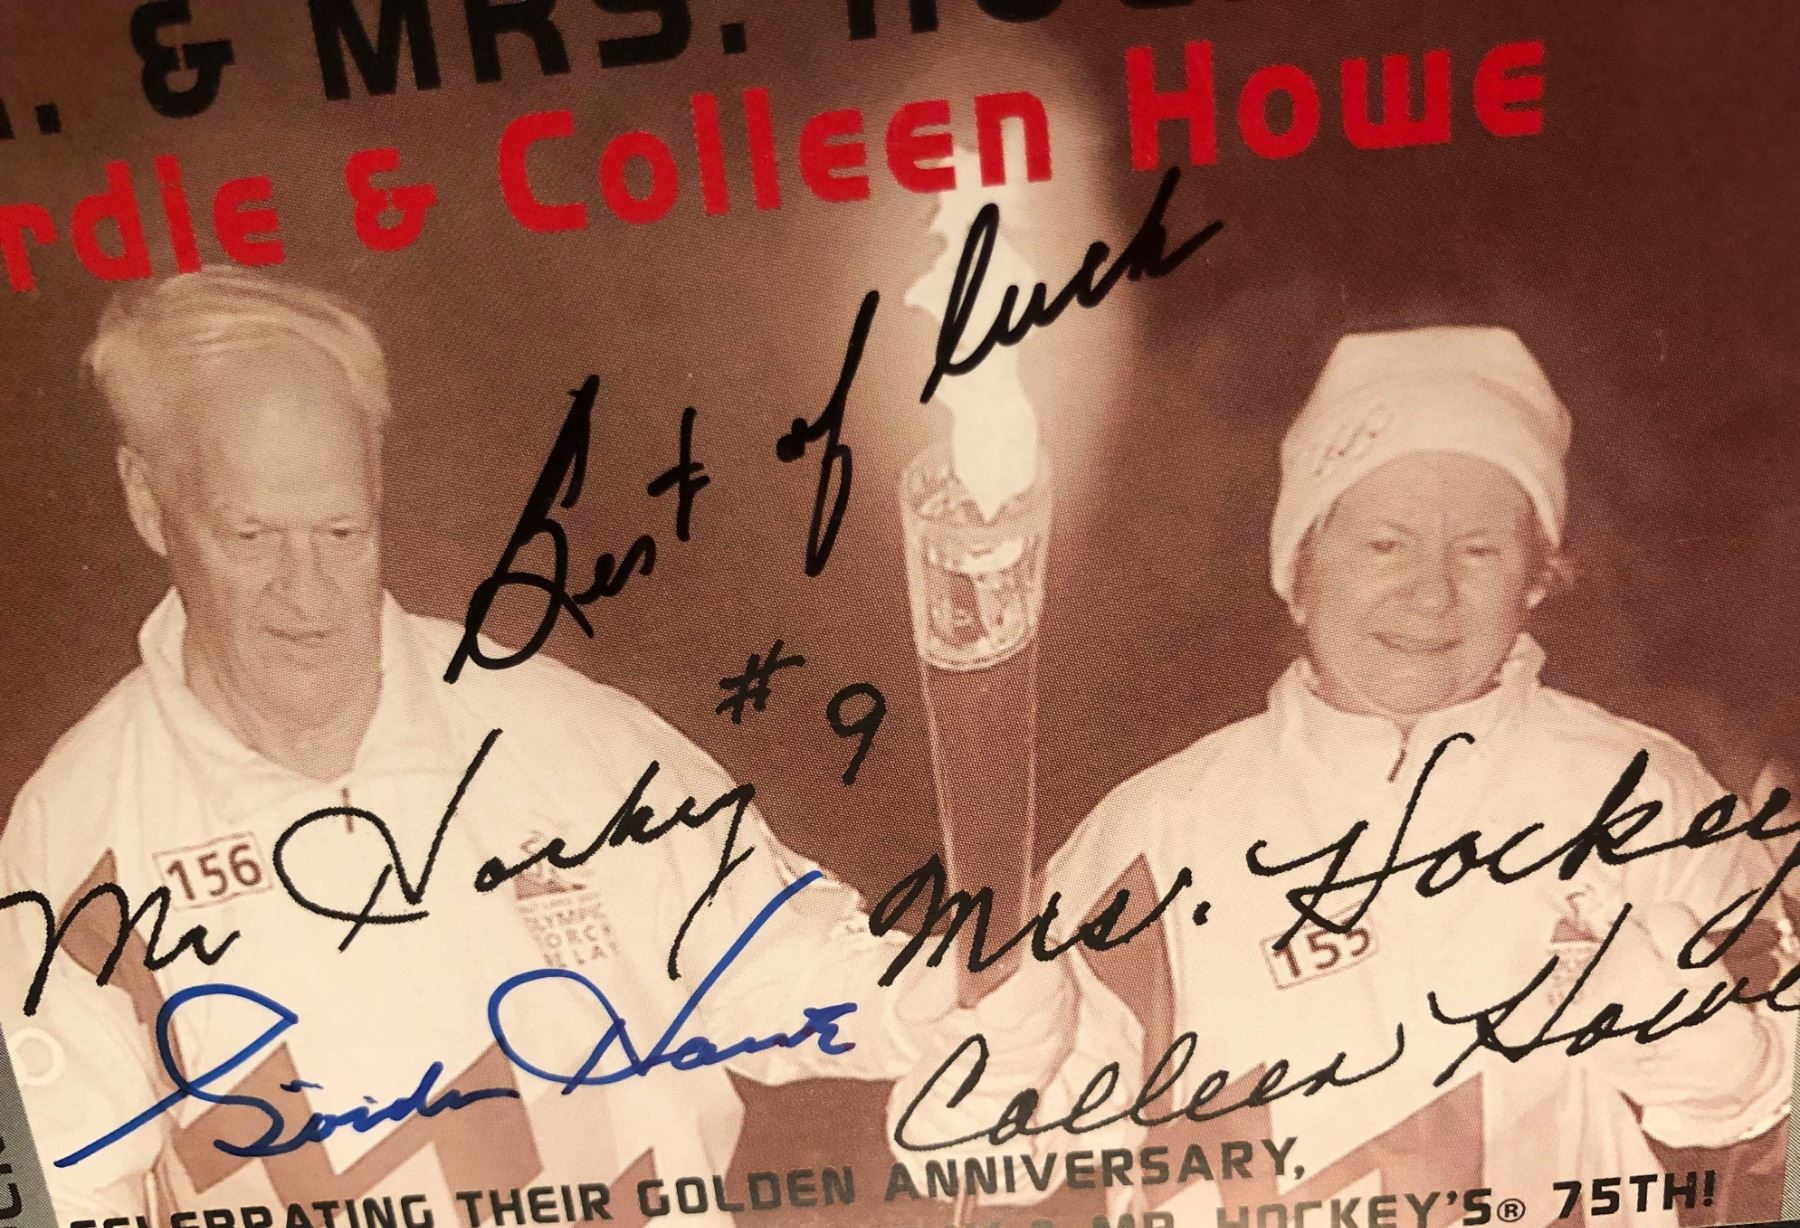 & MRS.
rdie & Colleen Howe
Best of luck
# 9
Mr Hockey
Mrs. Hockey
156
155
OLYMPIC
TORCH
RELAY
Gordie Howe
Colleen Howe
CELEBRATING THEIR GOLDEN ANNIVERSARY,
& MR. HOCKEY'S® 75TH!